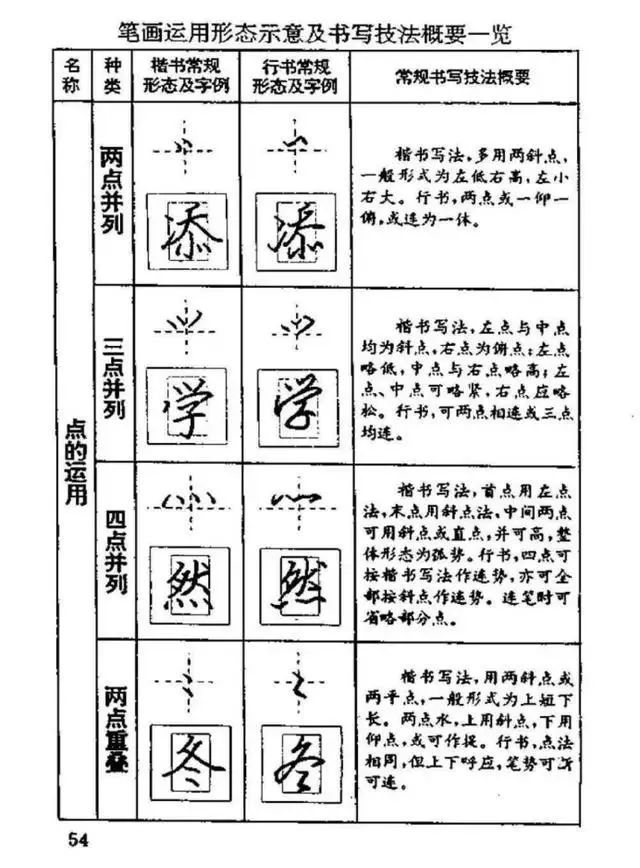 笔画运用形态示意及书写技法概要一览
名称
种类
楷书常规
形态及字例
行书常规
形态及字例
常规书写技法概要
点的运用
两点并列
添
添
楷书写法，多用两斜点，
一般形式为左低右高，左小
右大。行书，两点或一仰一
俯，或连为一体。
三点并列
学
学
楷书写法，左点与中点
均为斜点，右点为俯点；左点
略低，中点与右点略高；左
点、中点可略紧，右点应略
松。行书，可两点相连或三点
均连。
四点并列
然
然
楷书写法，首点用左点
法，末点用斜点法，中间两点
可用斜点或直点，并可高，整
体形态为弧势。行书，四点可
按楷书写法作连势，亦可全
部按斜点作连势。连笔时可
省略部分点。
两点重叠
冬
冬
楷书写法，用两斜点或
两平点，一般形式为上短下
长。两点水，上用斜点，下用
仰点，或可作提。行书，点法
相同，但上下呼应，笔势可断
可连。
54